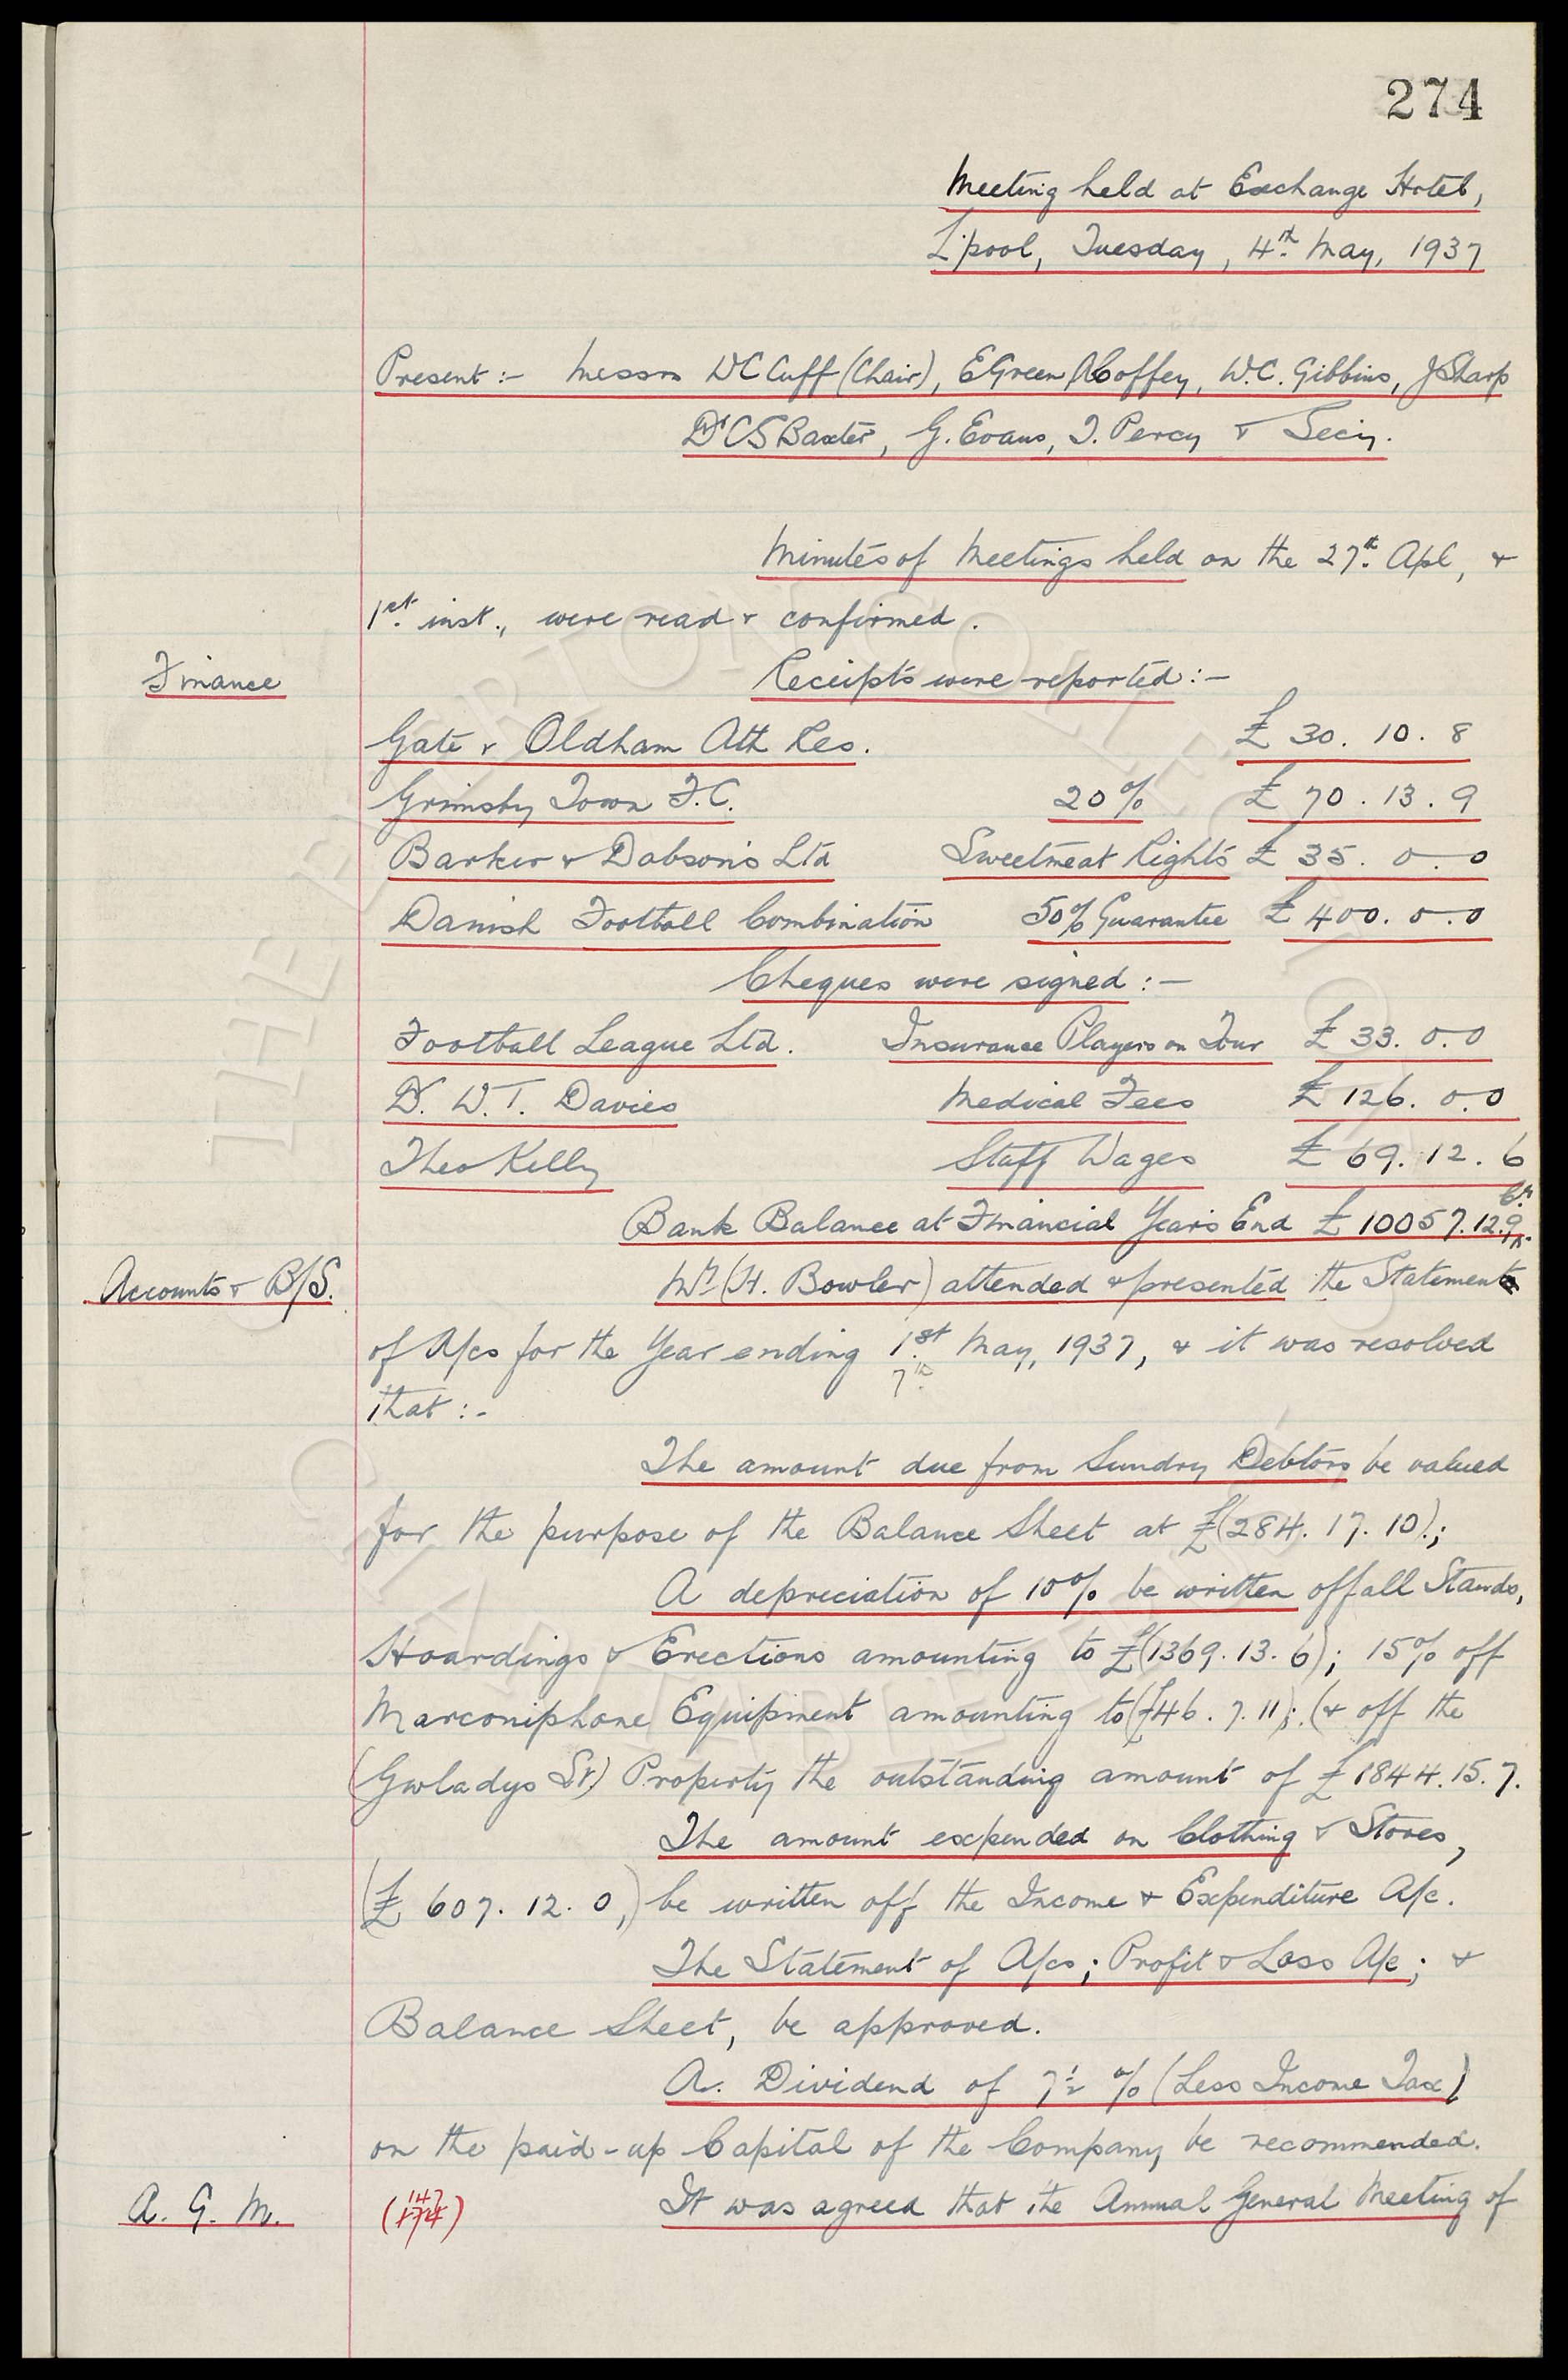 274
Meeting held at Exchange Hotel,
L'pool, Tuesday, 4th May, 1937
Present :- Messrs W C Cuff (Chair), E Green, A Coffey, W. C. Gibbins, J Sharp
Dr C S Baxter, G. Evans, T. Percy & Secy.
Minutes of Meetings held on the 27th Apl, &
1st inst., were read & confirmed.
Finance
Receipts were reported :-
Gate v Oldham Ath Res. £ 30. 10. 8
Grimsby Town F.C. 20% £ 70. 13. 9
Barker & Dobson's Ltd Sweetmeat Rights £ 35. 0. 0
Danish Football Combination 50% Guarantee £ 400. 0. 0
Cheques were signed :-
Football League Ltd. Insurance Players on Tour £ 33. 0. 0
Dr. W. T. Davies Medical Fees £ 126. 0. 0
Theo Kelly Staff Wages £ 69. 12. 6
Bank Balance at Financial Year's End £ 10057. 12. 9 Cr
Accounts & B/S.
Mr (H. Bowler) attended & presented the Statement
of A/cs for the Year ending 1st May, 1937, & it was resolved
7th
that :-
The amount due from Sundry Debtors be valued
for the purpose of the Balance Sheet at £(284. 17. 10).;
A depreciation of 10% be written off all Stands,
Hoardings & Erections amounting to £(1369. 13. 6); 15% off
Marconiphone Equipment amounting to (£46. 7. 11); (& off the
(Gwladys St) Property the outstanding amount of £1844. 15. 7.
The amount expended on Clothing & Stores,
(£ 607. 12. 0,) be written off the Income & Expenditure A/c.
The Statement of A/cs; Profit & Loss A/c; &
Balance Sheet, be approved.
A. Dividend of 7½ % (Less Income Tax)
on the paid-up Capital of the Company be recommended.
A. G. M. (147 174) It was agreed that the Annual General Meeting of
THE EVERTON COLLECTION
CHARITABLE TRUST